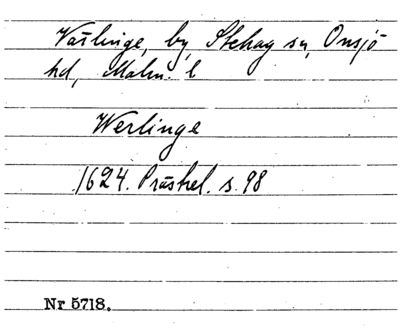 Värlinge, by, Stehag sn, Onsjö
hd, Malm. l
Werlinge
1624. Präsirel. s. 98
Nr 5718.